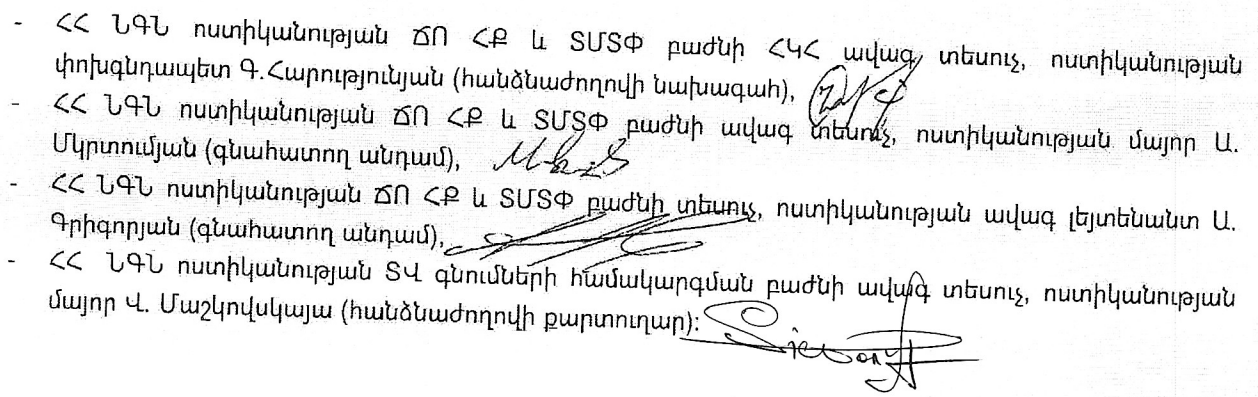 - ՀՀ ՆԳՆ ոստիկանության ՃՈ ՀՔ և ՏՄՏՓ բաժնի ՀԿՀ ավագ տեսուչ, ոստիկանության
փոխգնդապետ Գ.Հարությունյան (հանձնաժողովի նախագահ),
- ՀՀ ՆԳՆ ոստիկանության ՃՈ ՀՔ և ՏՄՏՓ բաժնի ավագ տեսուչ, ոստիկանության մայոր Ա.
Մկրտումյան (գնահատող անդամ),
- ՀՀ ՆԳՆ ոստիկանության ՃՈ ՀՔ և ՏՄՏՓ բաժնի տեսուչ, ոստիկանության ավագ լեյտենանտ Ա.
Գրիգորյան (գնահատող անդամ),
- ՀՀ ՆԳՆ ոստիկանության ՏՎ գնումների համակարգման բաժնի ավագ տեսուչ, ոստիկանության
մայոր Վ. Մաշկովսկայա (հանձնաժողովի քարտուղար):